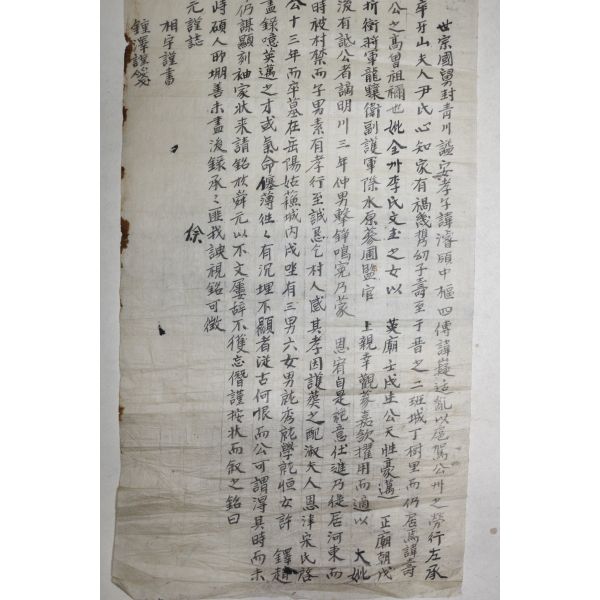 世宗國舅封青川謚安孝子諱濬領中樞四傳諱嶷适亂以扈駕公州之勞行左承
牢牙山夫人尹氏心知家有禍幾携幼子壽至于晋之二班城丁樹里而仍居焉諱壽
公之高曾祖禰也妣全州李氏文圭之女以 英廟壬戌生公天性豪邁 正廟朝戊
折衝將軍龍驤衛副護軍除水原蔘圃監官 上親幸觀蒙嘉歎擢用而適以 大妣
沒有訟公者謫明川三年仲男擊錚鳴寃乃蒙 恩宥自是乾意仕進乃徙居河東而
時被村禁而子男素有孝行至誠恳乞村人感其孝因護葬之配淑夫人恩津宋氏啓
公十三年而卒墓在岳陽姑蘇城内戌坐有三男六女男能秀能學能恒女許 鐸趙
盡錄噫英邁之才或氣命僝薄徃々有沉埋不顯者從古何恨而公可謂得其時而未
仍謀顯刻袖家狀来請銘於舜元以不文屢辞不獲忘僭謹按状而叙之銘曰
時碩人所塴善未盡後錄承々匪我諛視銘可徵
元謹誌 徐
相宇謹書
鍾澤謹箋